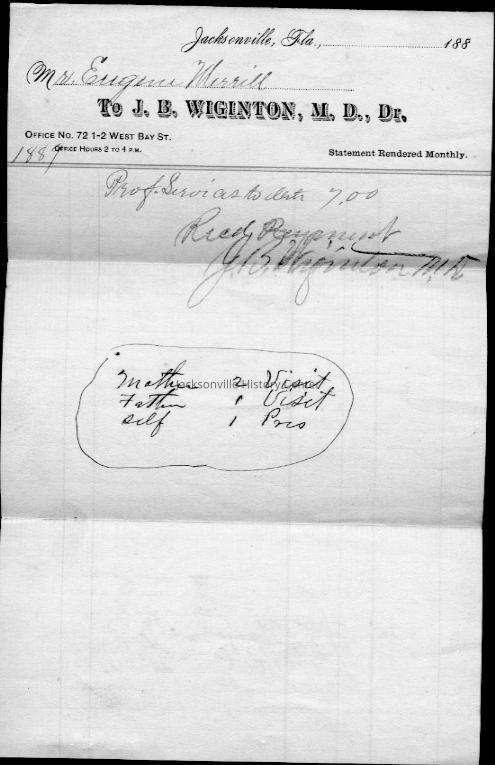 Jacksonville, Fla., 188
Mr. Eugene Merrill
To J. B. WIGINTON, M. D., Dr.
OFFICE NO. 72 1-2 WEST BAY ST.
1887 OFFICE HOURS 2 TO 4 P.M. Statement Rendered Monthly.
Prof. Services to date 7.00
Recd Payment
J. B. Wiginton M.D.
Mother 2 Visit
Jacksonville History Center
Father 1 Visit
Self 1 Pres